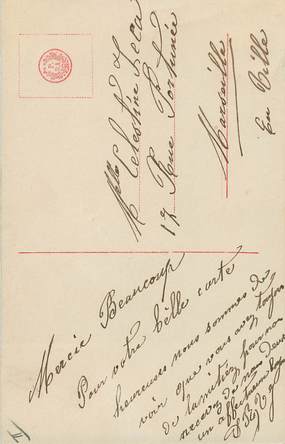 Mlle Celestine Zecca
17 Rue Fortunée
Marseille
En Ville
Mercie Beaucoup
Pour votre bèlle carte
heureuses nous sommes de
voir que vous avez toujour
de lamitiez pour nou
recevez de nou deux
un affectueux